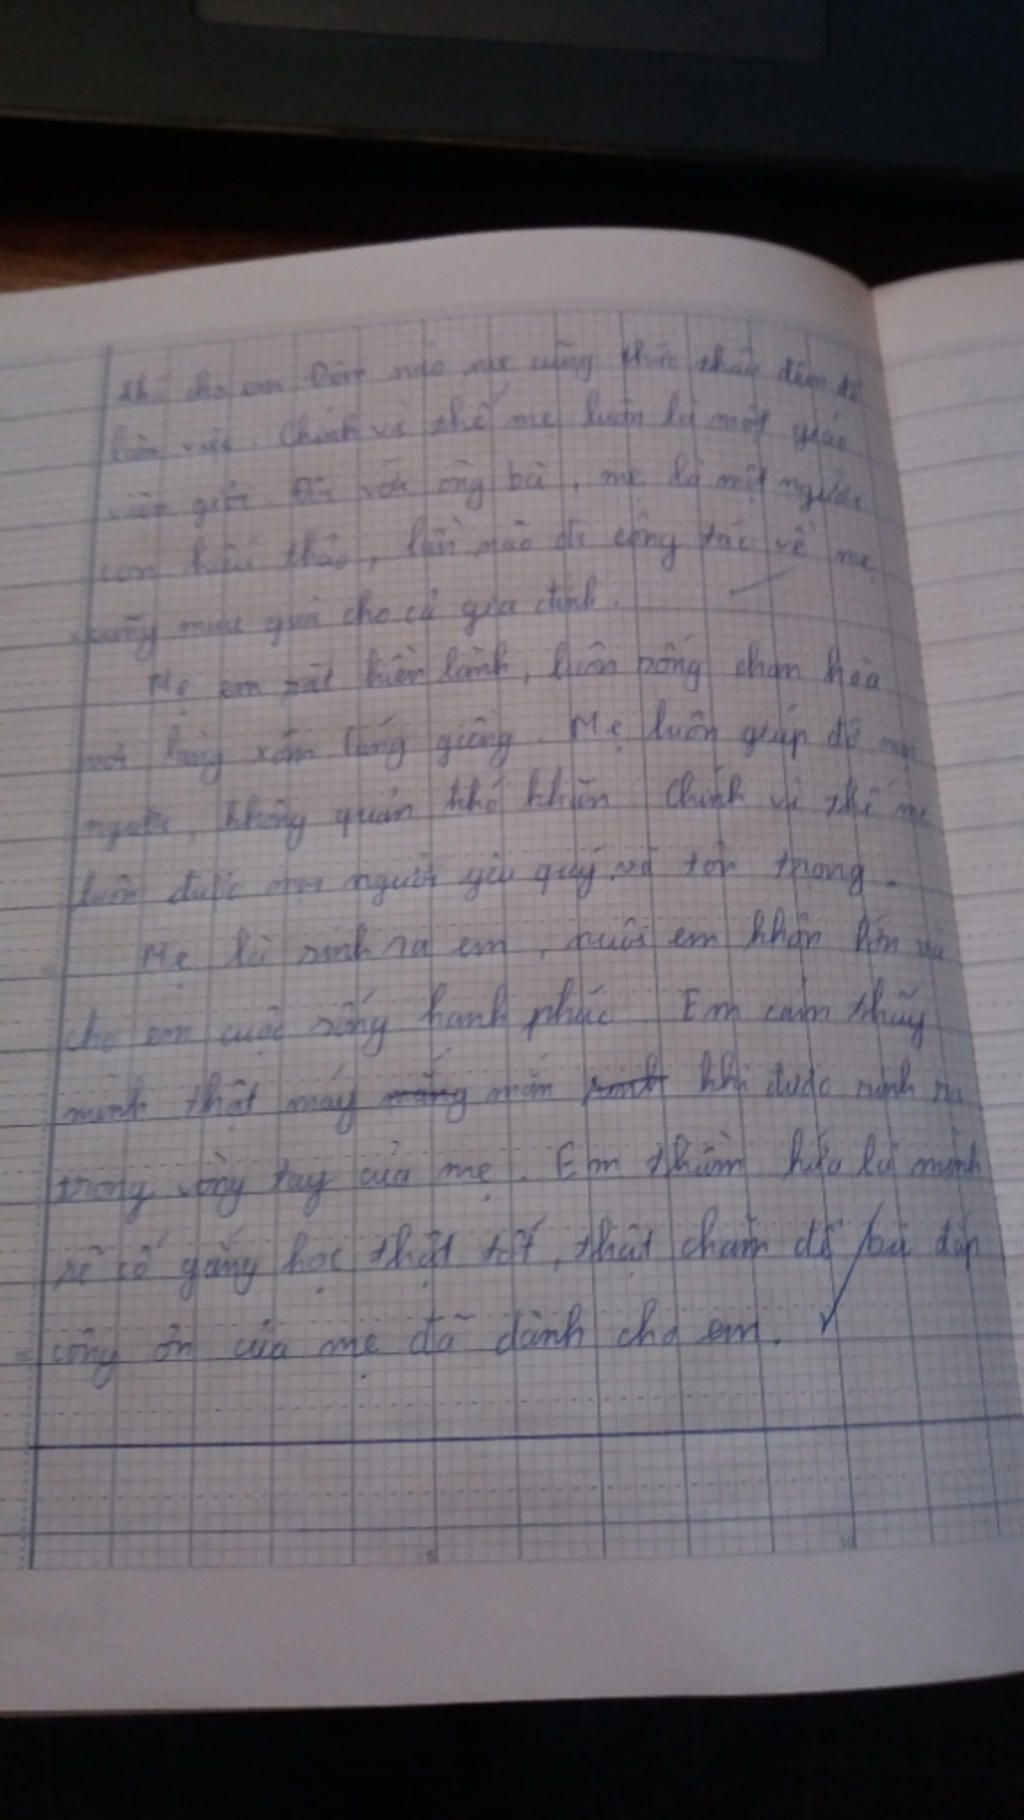 thứ cho em. Đêm nào mẹ cũng thức thâu đêm để
làm việc. Chính vì thế mẹ luôn là một giáo
viên giỏi. Đối với ông bà, mẹ là một người
con hiếu thảo, lần nào đi công tác về mẹ
cũng mua quà cho cả gia đình.
Mẹ em rất hiền lành, luôn sống chan hòa
với làng xóm láng giềng. Mẹ luôn giúp đỡ mọi
người, không quản khó khăn. Chính vì thế mẹ
luôn được mọi người yêu quý và tôn trọng.
Mẹ là sinh ra em, nuôi em khôn lớn và
cho em cuộc sống hạnh phúc. Em cảm thấy
mình thật máy mắn khi được sinh ra
trong vòng tay của mẹ. Em thầm hứa là mình
sẽ cố gắng học thật tốt, thật chăm để bù đắp
công ơn của mẹ đã dành cho em.